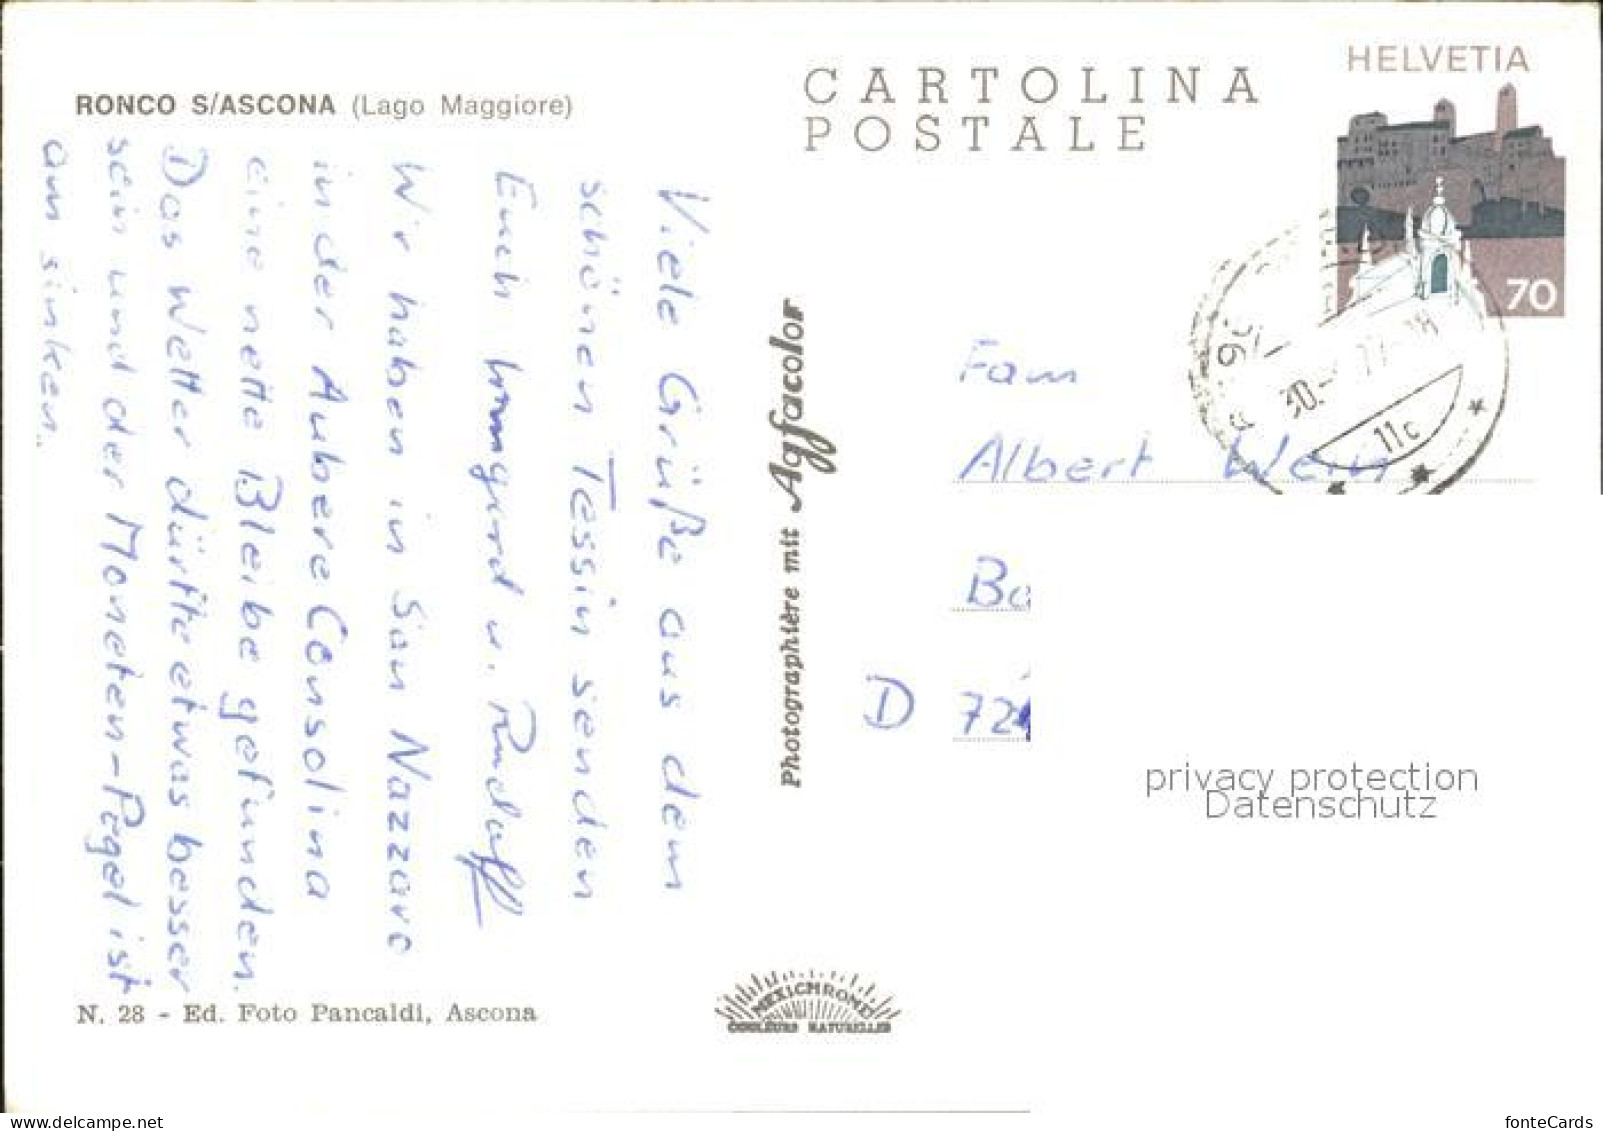 RONCO S/ASCONA (Lago Maggiore)
CARTOLINA
POSTALE
HELVETIA
70
30.
77-18
11c
Viele Grüße aus dem
schönen Tessin senden
Euch Irmgard u. Rudolf
Wir haben in San Nazzaro
in der Aubere Consolina
eine nette Bleibe gefunden.
Das Wetter dürfte etwas besser
sein und der Moneten-Pegel ist
am sinken.
Photographière mit Agfacolor
Fam
Albert
Ba
D 72
privacy protection
Datenschutz
N. 28 - Ed. Foto Pancaldi, Ascona
MEXICHROME
COULEURS NATURELLES
www.delcampe.net
fonteCards